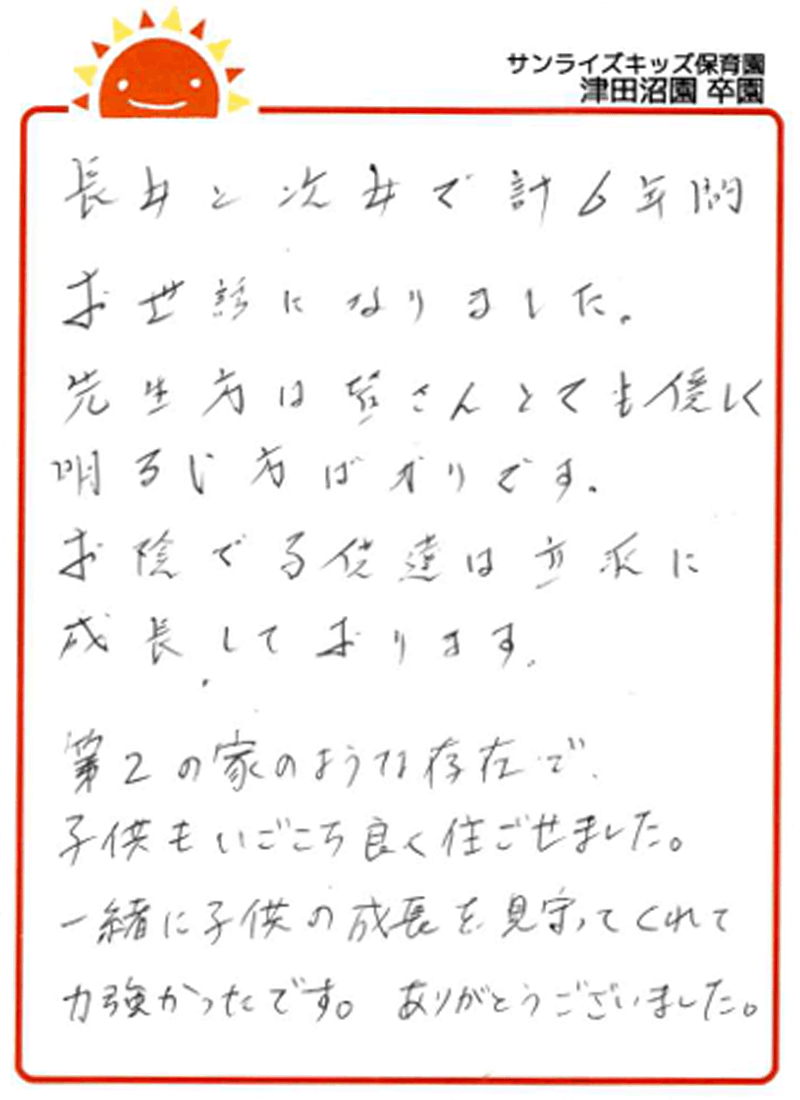 サンライズキッズ保育園
津田沼園 卒園
長女と次女で計6年間
お世話になりました。
先生方は皆さんとても優しく
明るい方ばかりです。
お陰で子供達は立派に
成長しております。
第2の家のような存在で、
子供もいごこち良く住ごせました。
一緒に子供の成長を見守ってくれて
力強かったです。ありがとうございました。